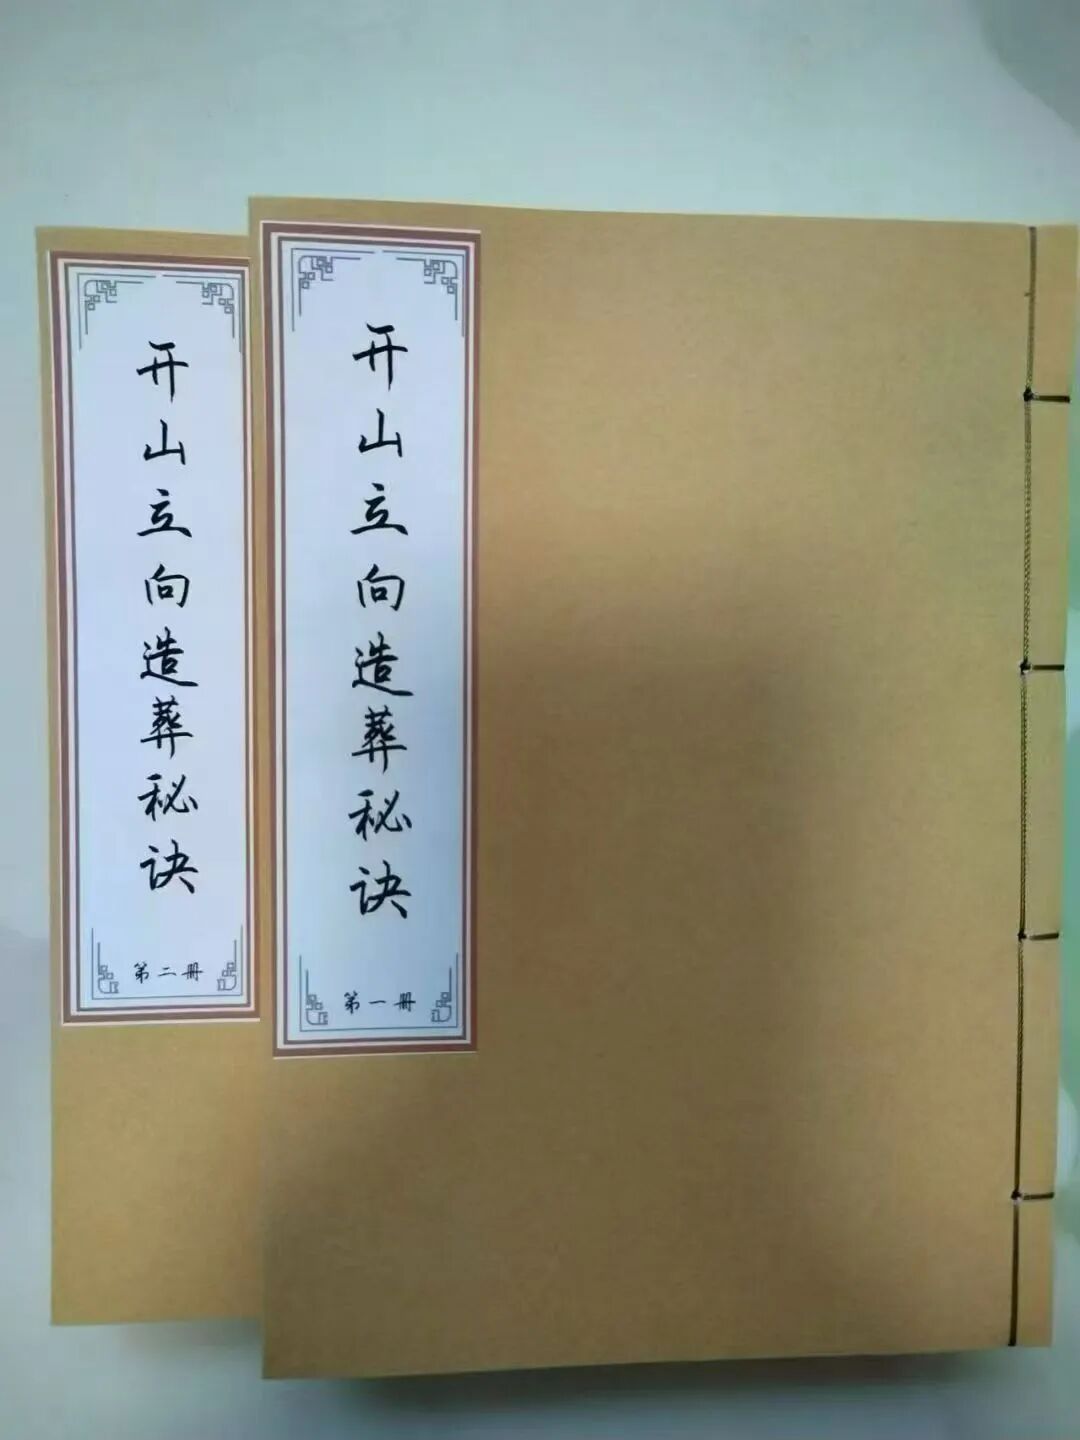 开山立向造葬秘诀
第一册
开山立向造葬秘诀
第二册